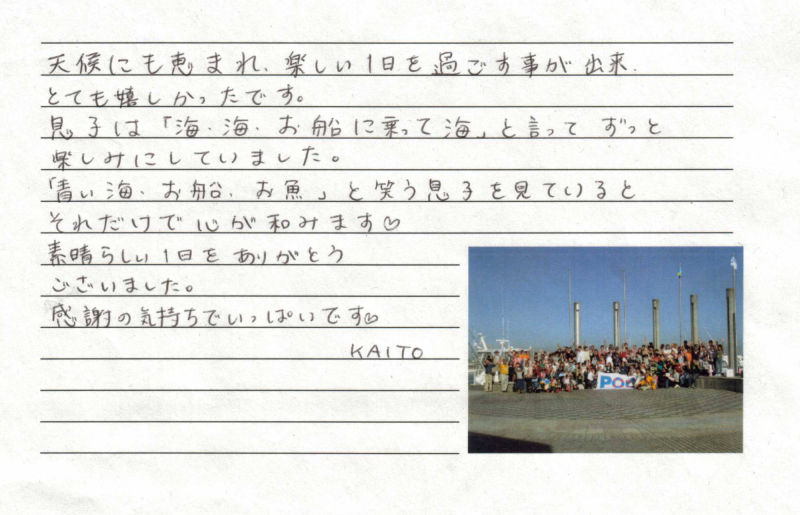 天候にも恵まれ、楽しい1日を過ごす事が出来、
とても嬉しかったです。
息子は「海・海・お船に乗って海」と言って ずっと
楽しみにしていました。
「青い海・お船・お魚」と笑う息子を見ていると
それだけで心が和みます♡
素晴らしい1日を ありがとう
ございました。
感謝の気持ちでいっぱいです♡
KAITO